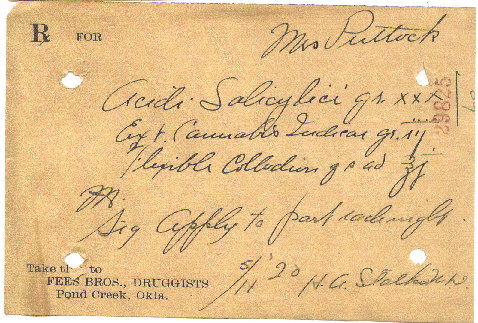 ℞ FOR
Mrs Puttock
Acidi Salicylici gr xxx
Ext. Cannabis Indicae gr. iij
Flexible Collodion q s ad ℥j
M.
Sig Apply to part each night.
29825
Take th to
FEES BROS., DRUGGISTS
Pond Creek, Okla.
5/11 '20
H. A.